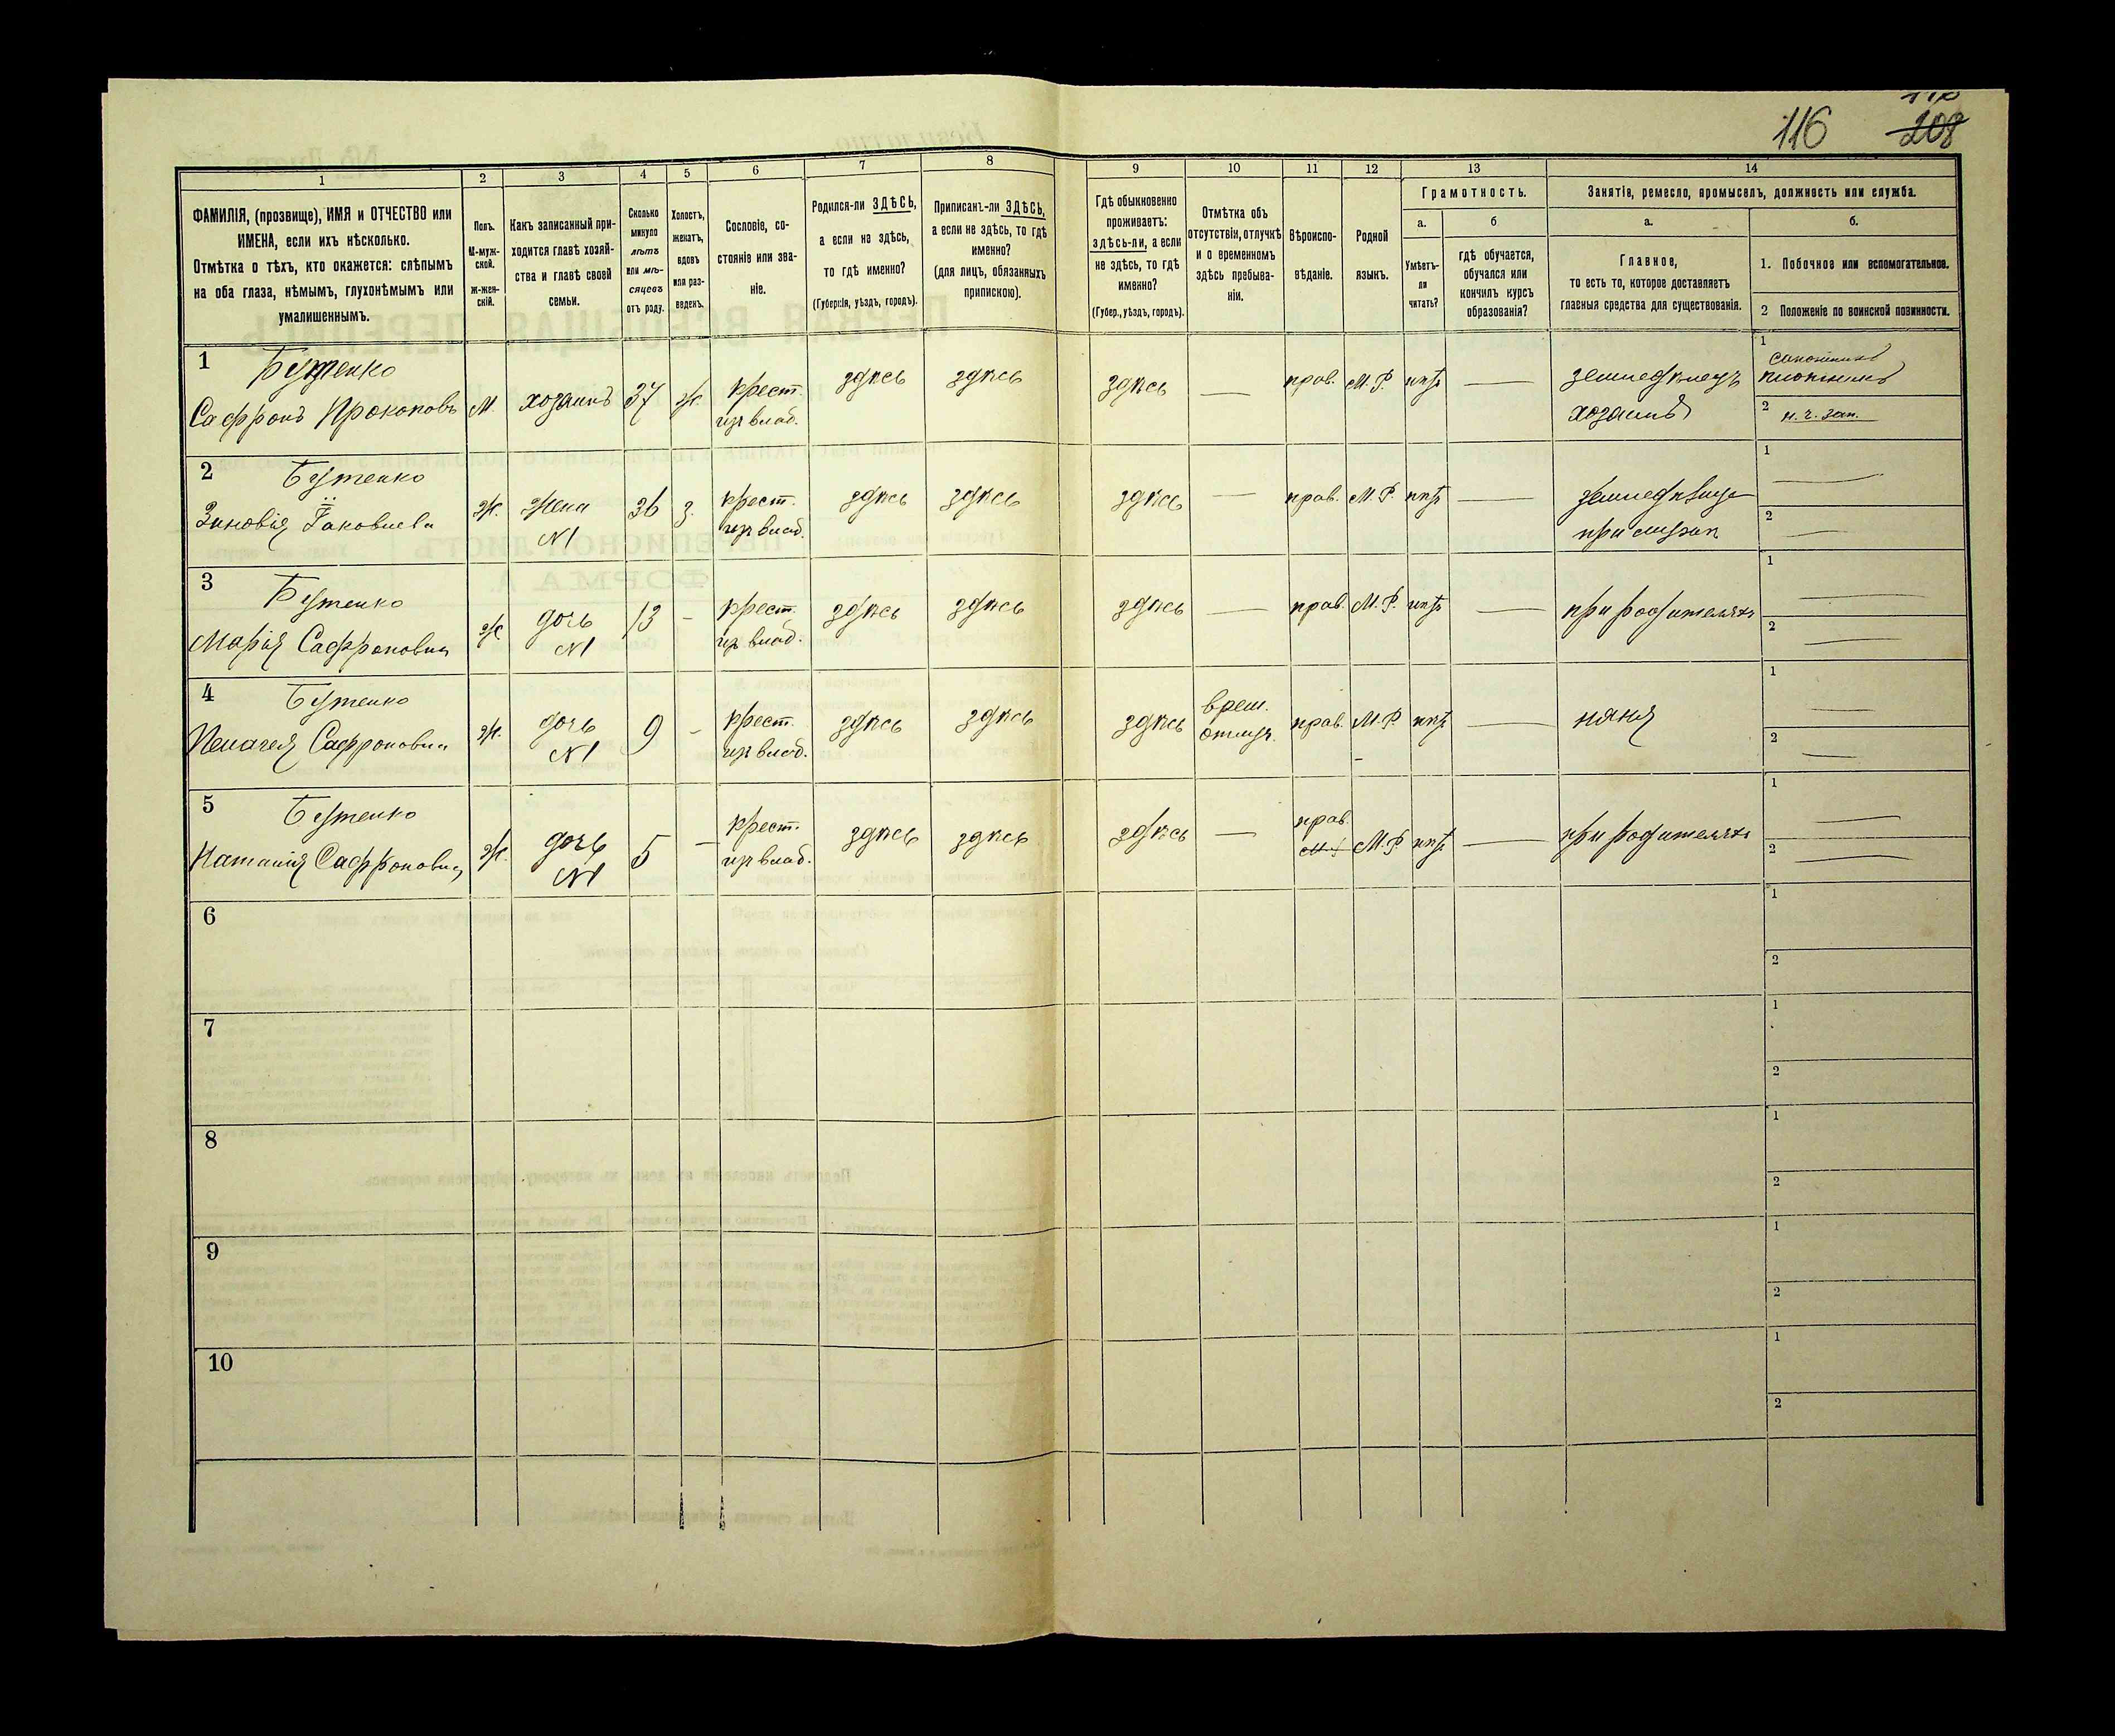 116 208
1 2 3 4 5 6 7 8 9 10 11 12 13 14
ФАМИЛІЯ, (прозвище), ИМЯ и ОТЧЕСТВО или
ИМЕНА, если ихъ нѣсколько.
Отмѣтка о тѣхъ, кто окажется: слѣпымъ
на оба глаза, нѣмымъ, глухонѣмымъ или
умалишеннымъ.
Полъ.
М-муж-
ской.
Ж-жен-
скій.
Какъ записанный при-
ходится главѣ хозяй-
ства и главѣ своей
семьи.
Сколько
минуло
лѣтъ
или мѣ-
сяцевъ
отъ роду.
Холостъ,
женатъ,
вдовъ
или раз-
веденъ.
Сословіе, со-
стояніе или зва-
ніе.
Родился-ли ЗДѢСЬ,
а если не здѣсь,
то гдѣ именно?
(Губернія, уѣздъ, городъ).
Приписанъ-ли ЗДѢСЬ,
а если не здѣсь, то гдѣ
именно?
(для лицъ, обязанныхъ
припискою).
Гдѣ обыкновенно
проживаетъ:
здѣсь-ли, а если
не здѣсь, то гдѣ
именно?
(Губер., уѣздъ, городъ).
Отмѣтка объ
отсутствіи, отлучкѣ
и о временномъ
здѣсь пребыва-
ніи.
Вѣроиспо-
вѣданіе.
Родной
языкъ.
Грамотность.
а.
Умѣетъ-
ли
читать?
б
гдѣ обучается,
обучался или
кончилъ курсъ
образованія?
Занятія, ремесло, промыселъ, должность или служба.
а.
Главное,
то есть то, которое доставляетъ
главныя средства для существованія.
б.
1. Побочное или вспомогательное.
2 Положеніе по воинской повинности.
1 Бутенко
Сафронъ Прокоповъ М. хозяинъ 37 ж. крест. изъ влад. здѣсь здѣсь здѣсь — прав. М.Р. нѣтъ — земледѣлецъ хозяинъ
1 сапожникъ плотникъ
2 н. ч. зап.
2 Бутенко
Зиновія Іаковлева Ж. жена N1 36 з. крест. изъ влад. здѣсь здѣсь здѣсь — прав. М.Р. нѣтъ — при мужѣ
1 —
2 —
3 Бутенко
Марія Сафронова Ж. дочь N1 13 - крест. изъ влад. здѣсь здѣсь здѣсь — прав. М.Р. нѣтъ — при родителяхъ
1 —
2 —
4 Бутенко
Пелагея Сафронова Ж. дочь N1 9 - крест. изъ влад. здѣсь здѣсь здѣсь врем. отлуч. прав. М.Р. нѣтъ — няня
1 —
2 —
5 Бутенко
Наталія Сафронова Ж. дочь N1 5 — крест. изъ влад. здѣсь здѣсь здѣсь — прав. М.Р. нѣтъ — при родителяхъ
1 —
2 —
6 1
2
7 1
2
8 1
2
9 1
2
10 1
2